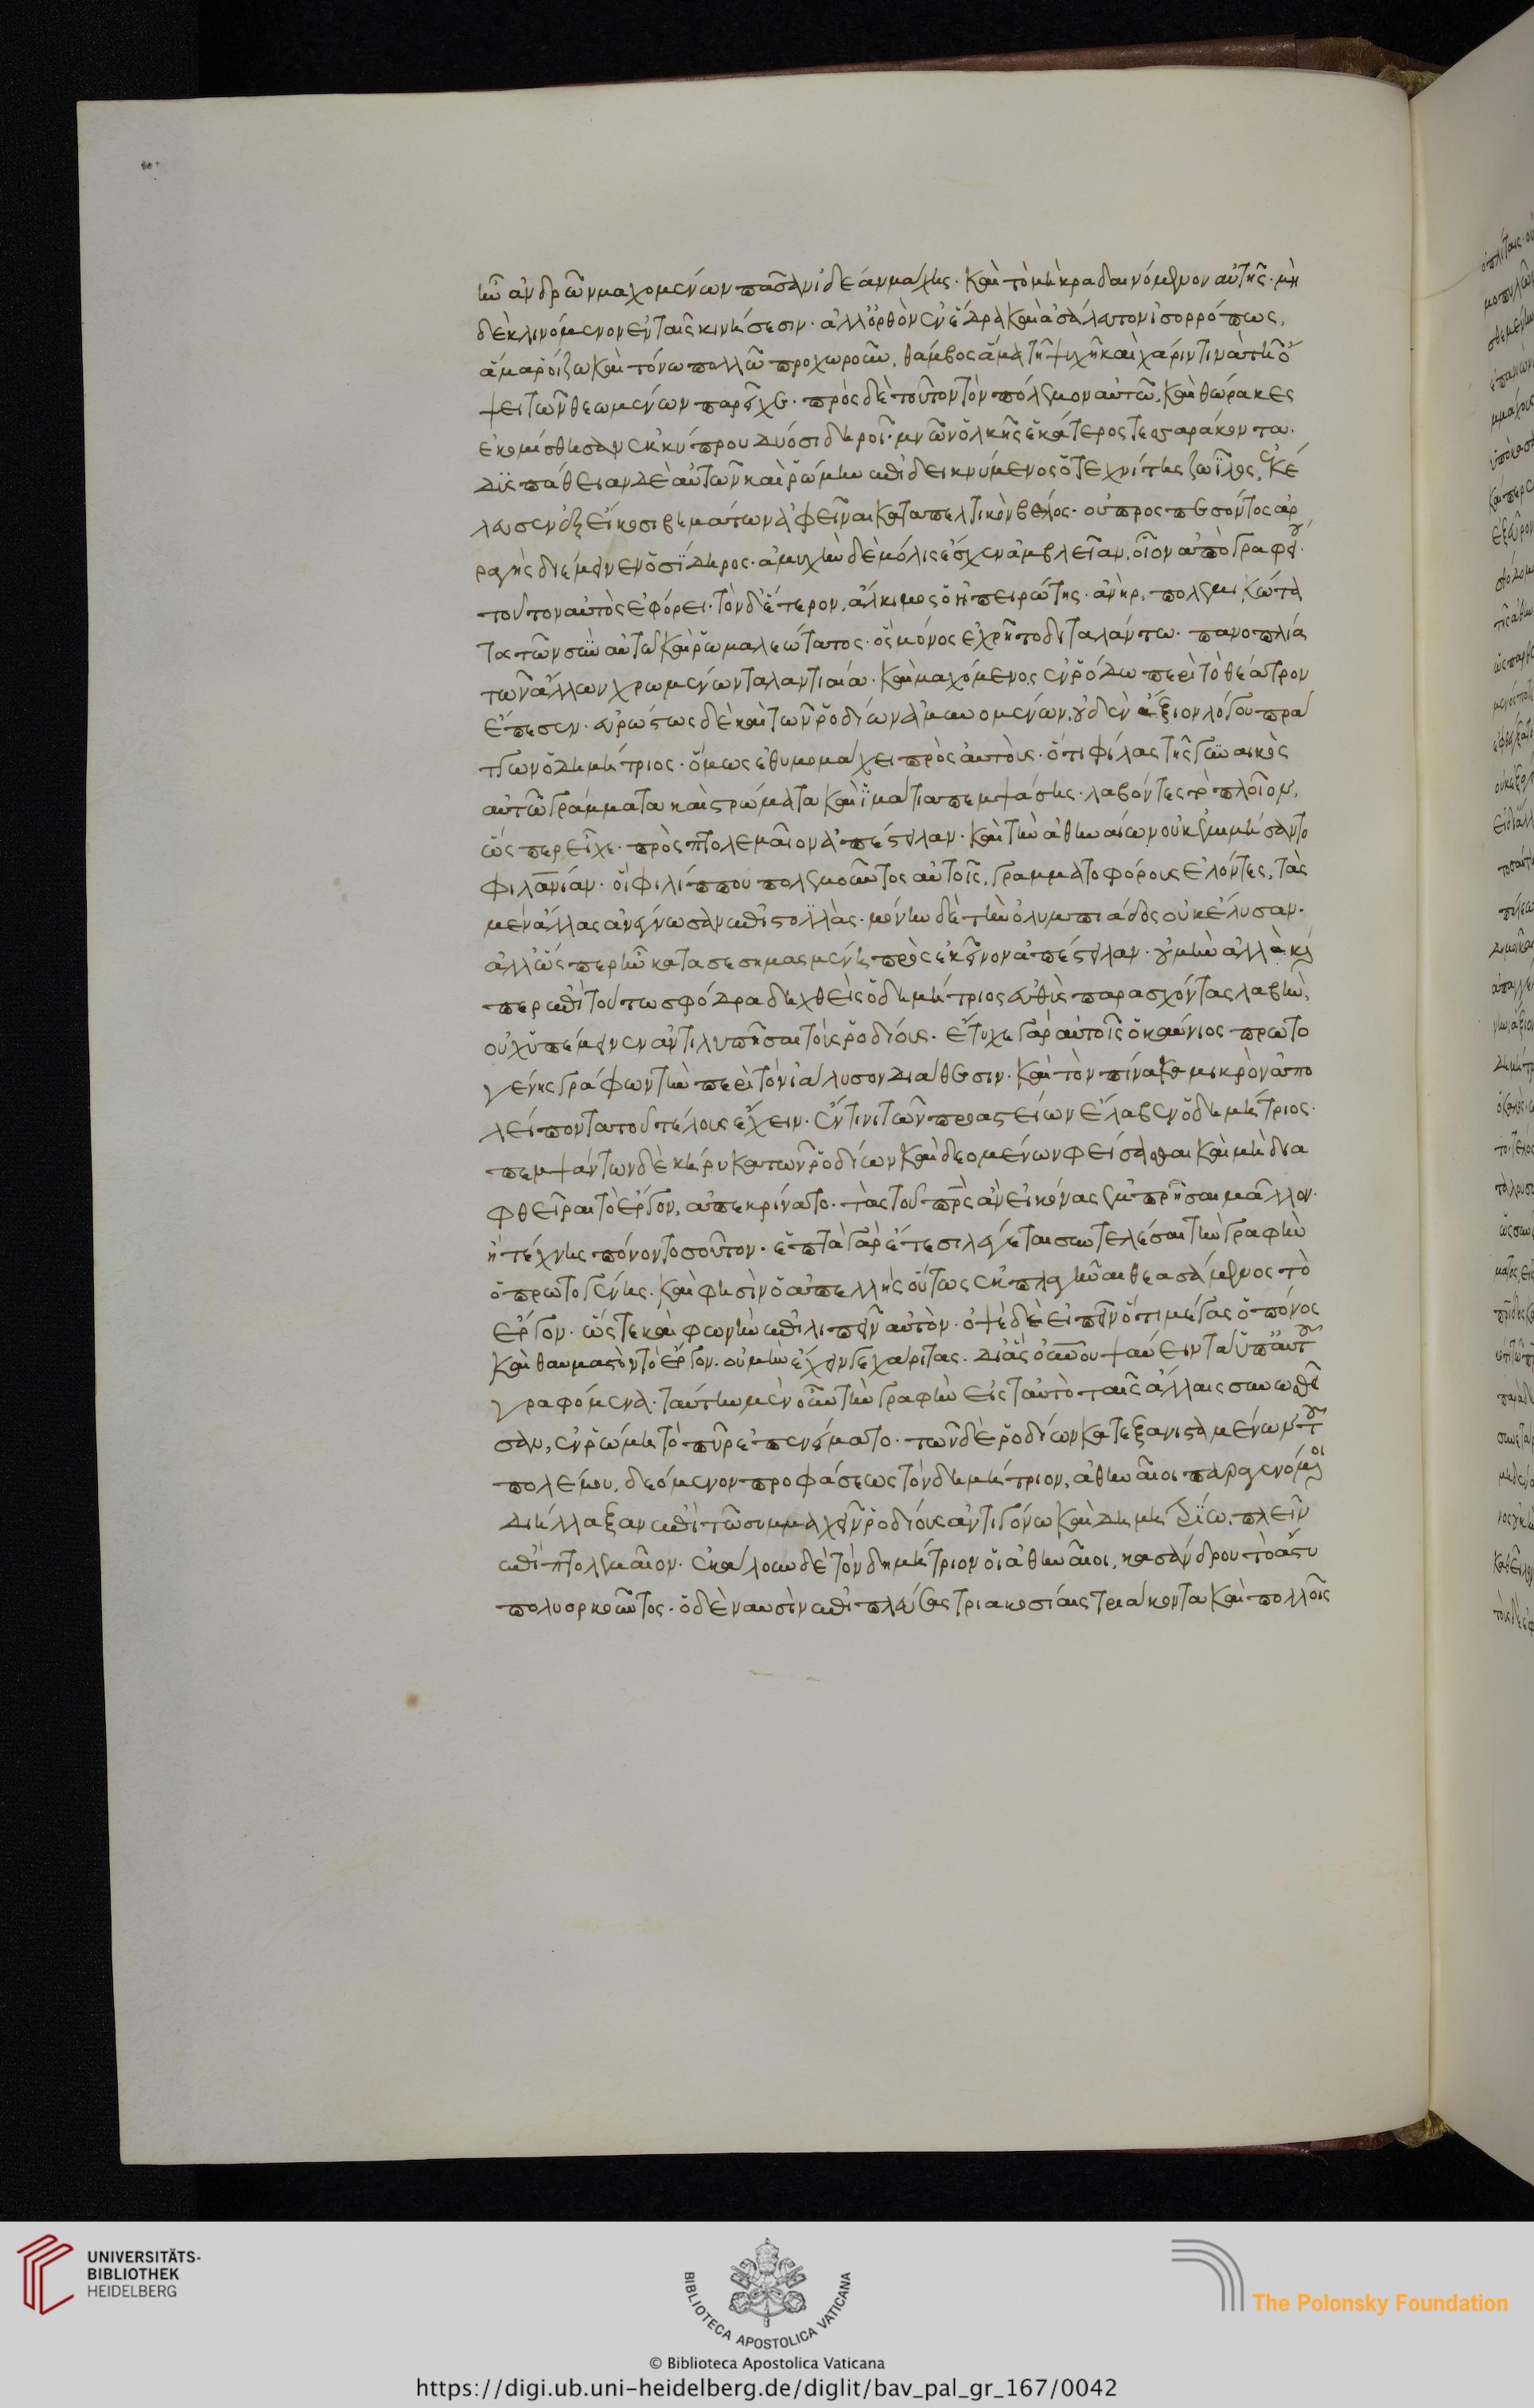 ἢν ἀνδρῶν μαχομένων πᾶσαν ἰδέαν μάχης. καὶ τὸ μὴ κραδαινόμενον αὐτῆς. μη
δὲ κλινόμενον ἐν ταῖς κινήσεσιν. ἀλλ' ὀρθὸν ἐν ἕδρα καὶ ἀσάλευτον ἰσορρόπως,
ἅμα ῥοίζω καὶ τόνω πολλῶ προχωροῦν, θάμβος ἅμα τῆ ψυχῆ καὶ χάριν τινὰ τῆ ὄ
ψει τῶν θεωμένων παρεῖχε. πρὸς δὲ τοῦτον τὸν πόλεμον αὐτῶ, καὶ θώρακες
ἐκομίσθησαν ἐκ κύπρου δύο σιδηροῖ. μνῶν ὁλκῆς ἑκάτερος τεσσαράκοντα.
δυσπάθειαν δὲ αὐτῶν καὶ ῥώμην ἐπιδεικνύμενος ὁ τεχνίτης ζωΐλος, ἐκέ
λευσεν ἐξ εἴκοσι βημάτων ἀφεῖναι καταπελτικὸν βέλος. οὗ προσπεσόντος ἀρ
ραγὴς διέμεινεν ὁ σίδηρος. ἀμυχὴν δὲ μόλις ἔσχεν ἀμβλεῖαν, οἷον ἀπὸ γραφείου.
τοῦτον αὐτὸς ἐφόρει. τὸν δ' ἕτερον, ἄλκιμος ὁ ἠπειρώτης. ἀνὴρ, πολεμικώτα
τος τῶν σὺν αὐτῶ καὶ ῥωμαλεώτατος. ὃς μόνος ἐχρῆτο διταλάντω. πανοπλία
τῶν ἄλλων χρωμένων ταλαντιαία. καὶ μαχόμενος ἐν ῥόδω περὶ τὸ θέατρον
ἔπεσεν. εὐρώστως δὲ καὶ τῶν ῥοδίων ἀμυνομένων, οὐδὲν ἄξιον λόγου πράτ
των ὁ δημήτριος. ὅμως ἐθυμομάχει πρὸς αὐτοὺς. ὅτι φίλας τῆς γυναικὸς
αὐτῶ γράμματα καὶ στρώματα καὶ ἱμάτια πεμψάσης. λαβόντες τὸ πλοῖον,
ὥσπερ εἶχε. πρὸς πτολεμαῖον ἀπέστειλαν. καὶ τὴν ἀθηναίων οὐκ ἐμιμήσαντο
φιλανίαν. οἳ φιλίππου πολεμοῦντος αὐτοῖς, γραμματοφόρους ἑλόντες, τὰς
μὲν ἄλλας ἀνέγνωσαν ἐπιστολὰς. μόνην δὲ τὴν ὀλυμπιάδος οὐκ ἔλυσαν.
ἀλλ' ὥσπερ ἦν κατασεσημασμένη πρὸς ἐκεῖνον ἀπέστειλαν. οὐ μὴν ἀλλὰ καί
περ ἐπὶ τούτω σφόδρα δηχθεὶς ὁ δημήτριος εὐθὺς παρασχόντας λαβὴν,
οὐχ ὑπέμεινεν ἀντιλυπῆσαι τοὺς ῥοδίους. ἔτυχε γὰρ αὐτοῖς ὁ καύνιος πρωτο
γένης γράφων τὴν περὶ τὸν ἰάλυσον διάθεσιν. καὶ τὸν πίνακα μικρὸν ἀπο
λείποντα τοῦ τέλους ἔχειν. ἔν τινι τῶν προαστείων ἔλαβεν ὁ δημήτριος.
πεμψάντων δὲ κήρυκα τῶν ῥοδίων καὶ δεομένων φείσασθαι καὶ μὴ δια
φθεῖραι τὸ ἔργον, ἀπεκρίνατο. τὰς τοῦ πρς ἂν εἰκόνας ἐμπρῆσαι μᾶλλον.
ἢ τέχνης πόνον τοσοῦτον. ἑπτὰ γὰρ ἔτεσι λέγεται συντελέσαι τὴν γραφὴν
ὁ πρωτογένης. καὶ φησὶν ὁ ἀπελλῆς οὕτως ἐκπλαγῆναι θεασάμενος τὸ
ἔργον. ὥστε καὶ φωνὴν ἐπιλιπεῖν αὐτὸν. ὀψὲ δὲ εἰπεῖν ὅτι μέγας ὁ πόνος
καὶ θαυμαστὸν τὸ ἔργον. οὐ μὴν ἔχειν γε χάριτας. δι' ἃς οὐνου ψαύειν τὰ ὑπ' αὐτοῦ
γραφόμενα. ταύτην μὲν οὖν τὴν γραφὴν εἰς ταὐτὸ ταῖς ἄλλαις συνωσθεῖ
σαν, ἐν ῥώμη τὸ πῦρ ἐπενείματο. τῶν δὲ ῥοδίων κατεξανισταμένων τοῦ
πολέμου, δεόμενον προφάσεως τὸν δημήτριον, ἀθηναῖοι παραγενόμενοι
διήλλαξαν ἐπὶ τῶ συμμαχεῖν ῥοδίους ἀντιγόνω καὶ δημητρίω, πλὴν
ἐπὶ πτολεμαῖον. ἐκάλουν δὲ τὸν δημήτριον οἱ ἀθηναῖοι, κασάνδρου τὸ ἄστυ
πολυορκοῦντος. ὁ δὲ ναυσὶν ἐπιπλεύσας τριακοσίαις τριάκοντα καὶ πολλοῖς
UNIVERSITÄTS-
BIBLIOTHEK
HEIDELBERG
BIBLIOTECA APOSTOLICA VATICANA
The Polonsky Foundation
© Biblioteca Apostolica Vaticana
https://digi.ub.uni-heidelberg.de/diglit/bav_pal_gr_167/0042